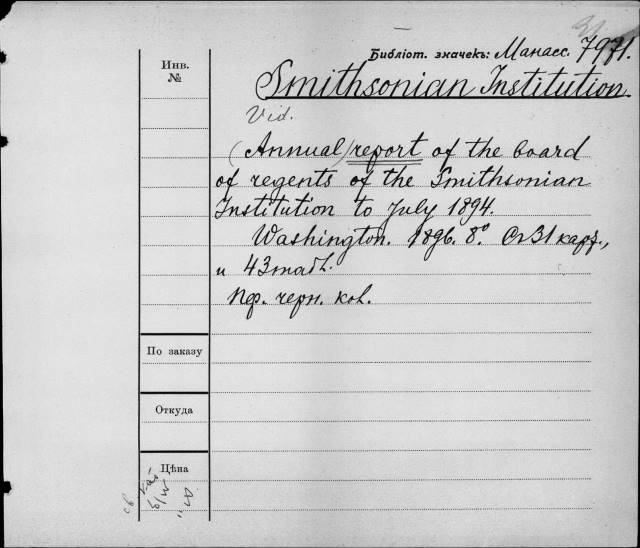 Библіот. значекъ: Манасс. 7971.
Инв.
№
Smithsonian Institution.
Vid.
(Annual) report of the board
of regents of the Smithsonian
Institution to July 1894.
Washington. 1896. 8°. Съ 31 карт.,
и 43 табл.
Пф. черн. кол.
По заказу
Откуда
Цѣна